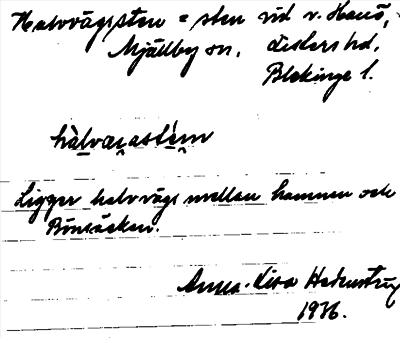 Halvvägssten = sten vid v. Hanö,
Mjällby sn. Listers hd.
Blekinge l.
hàlvagastè̩n
Ligger halvvägs mellan hamnen och
Bönsäcken.
Anna-Lisa
1936.